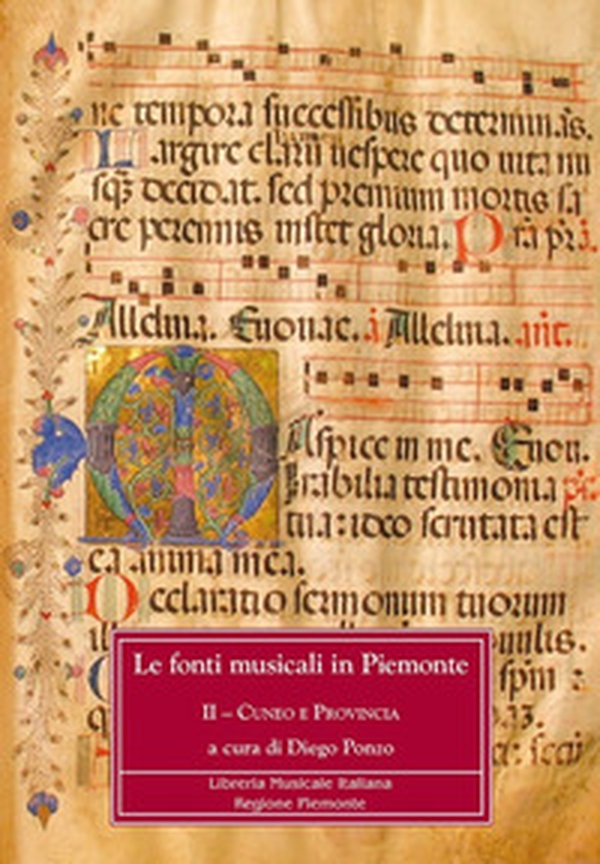 ne tempora succeſſibus determinãs.
Largire clarũ ueſpere quo uita nu
ſqȝ decidat. ſed premium mortis ſa
cre perennis inſtet gloria. P
Alleluia. Euouae. a Alleluia. añt.
Aſpice in me. Euou.
rabilia teſtimonia
tua: ideo ſcrutata eſt
ea anima mea.
Declaratio ſermonum tuorum
Le fonti musicali in Piemonte
II – CUNEO E PROVINCIA
a cura di Diego Ponzo
Libreria Musicale Italiana
Regione Piemonte